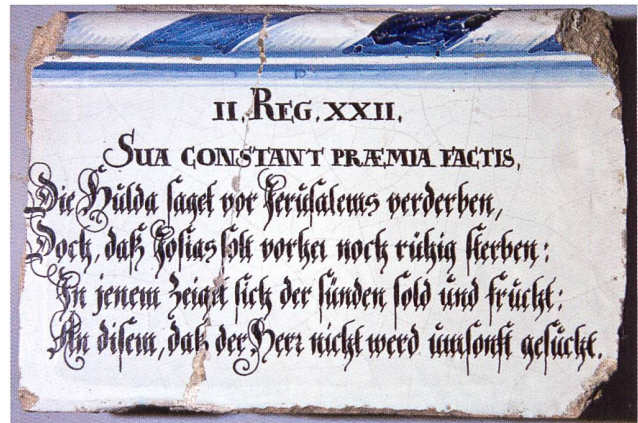 II. REG. XXII.
SUA CONSTANT PRÆMIA FACTIS.
Die Hulda saget vor Jerusalems verderben,
Doch, daß Josias solt vorher noch rühig sterben:
In jenem Zeiget sich der sünden sold und frucht:
An disem, daß der Herr nicht werd umsonst gesucht.